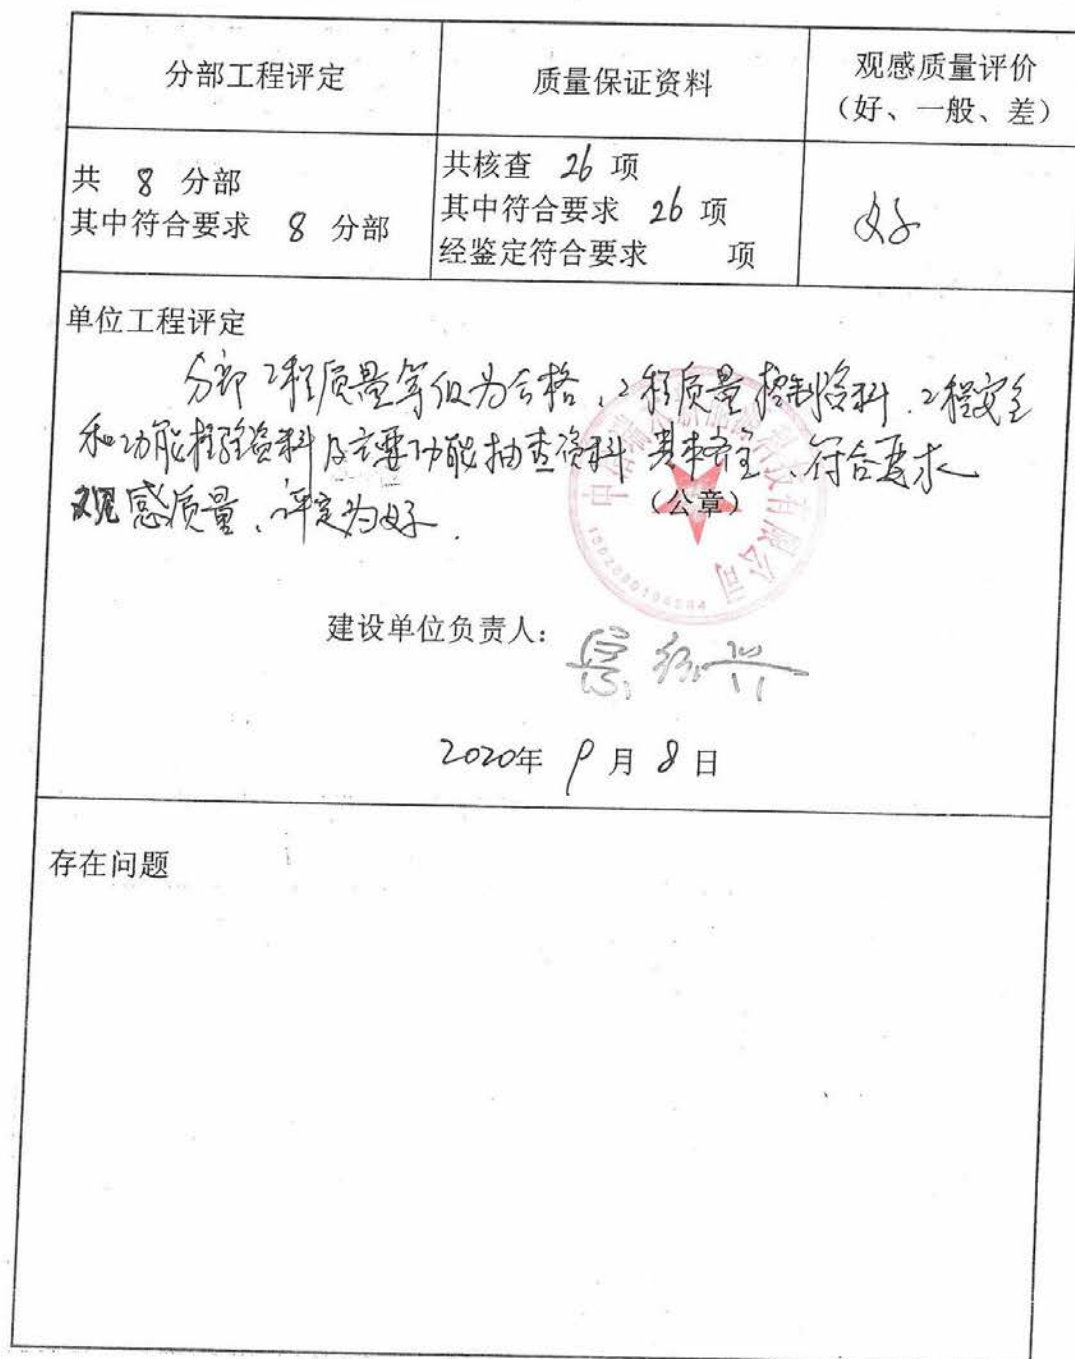 分部工程评定
质量保证资料
观感质量评价
（好、一般、差）
共 8 分部
其中符合要求 8 分部
共核查 26 项
其中符合要求 26 项
经鉴定符合要求 项
好
单位工程评定
分部工程质量等级为合格、工程质量控制资料、工程安全
和功能检验资料及主要功能抽查资料基本齐全、符合要求
观感质量、评定为好.
（公章）
建设单位负责人：
2020年 9 月 8 日
存在问题